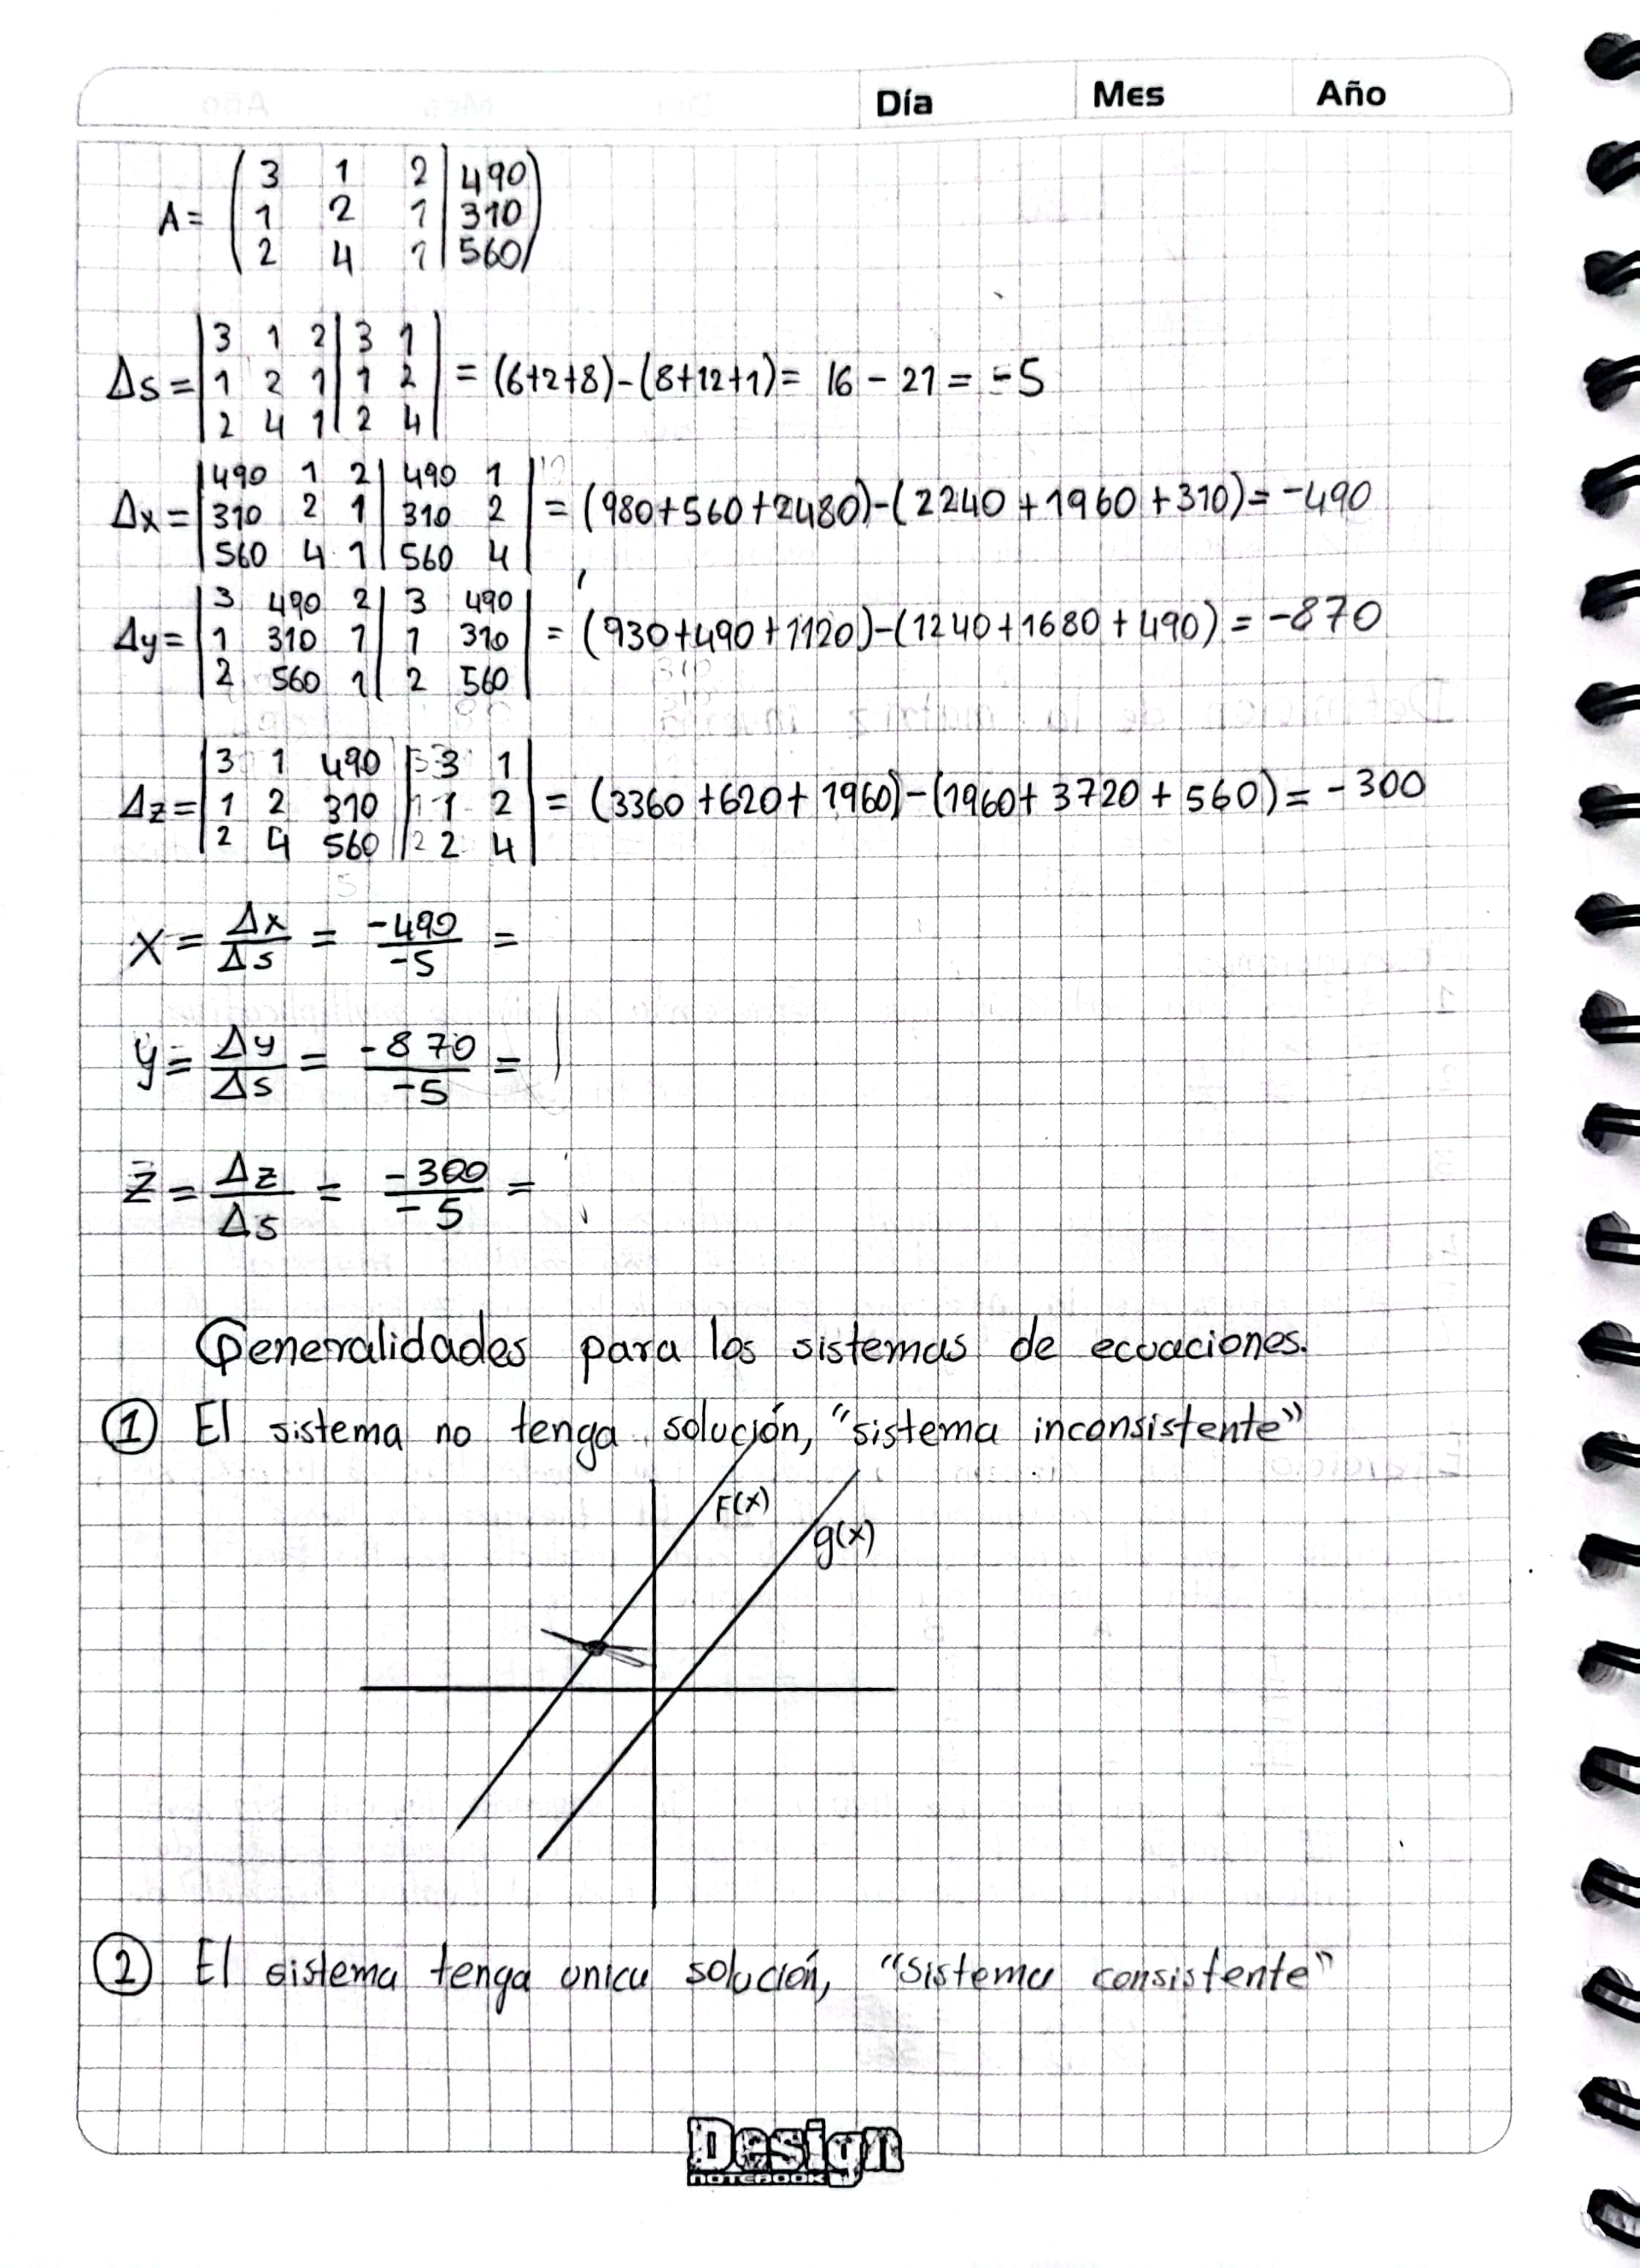 Día Mes Año
A= (3 1 2 | 490)
(1 2 1 | 310)
(2 4 1 | 560)
Δs = |3 1 2| 3 1|
|1 2 1| 1 2| = (6+2+8)-(8+12+1)= 16 - 21 = -5
|2 4 1| 2 4|
Δx = |490 1 2| 490 1|
|310 2 1| 310 2| = (980+560+2480)-(2240+1960+310)= -490
|560 4 1| 560 4|
Δy= |3 490 2| 3 490|
|1 310 1| 1 310| = (930+490+1120)-(1240+1680+490) = -870
|2 560 1| 2 560|
Δz= |3 1 490| 3 1|
|1 2 310| 1 2| = (3360+620+1960)-(1960+3720+560)= -300
|2 4 560| 2 4|
X = Δx/Δs = -490/-5 =
y = Δy/Δs = -870/-5 =
Z = Δz/Δs = -300/-5 =
Generalidades para los sistemas de ecuaciones.
① El sistema no tenga solución, "sistema inconsistente"
F(x)
g(x)
② El sistema tenga unica solución, "Sistema consistente"
Design
NOTEBOOK